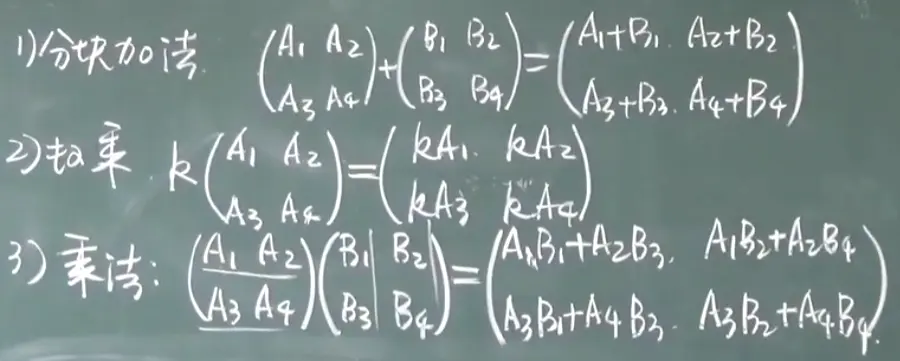 1)分块加法 (A₁ A₂ / A₃ A₄) + (B₁ B₂ / B₃ B₄) = (A₁+B₁. A₂+B₂ / A₃+B₃. A₄+B₄)
2)数乘. k(A₁ A₂ / A₃ A₄) = (kA₁. kA₂ / kA₃ kA₄)
3)乘法: (A₁ A₂ / A₃ A₄)(B₁ B₂ / B₃ B₄) = (A₁B₁+A₂B₃. A₁B₂+A₂B₄ / A₃B₁+A₄B₃. A₃B₂+A₄B₄.)